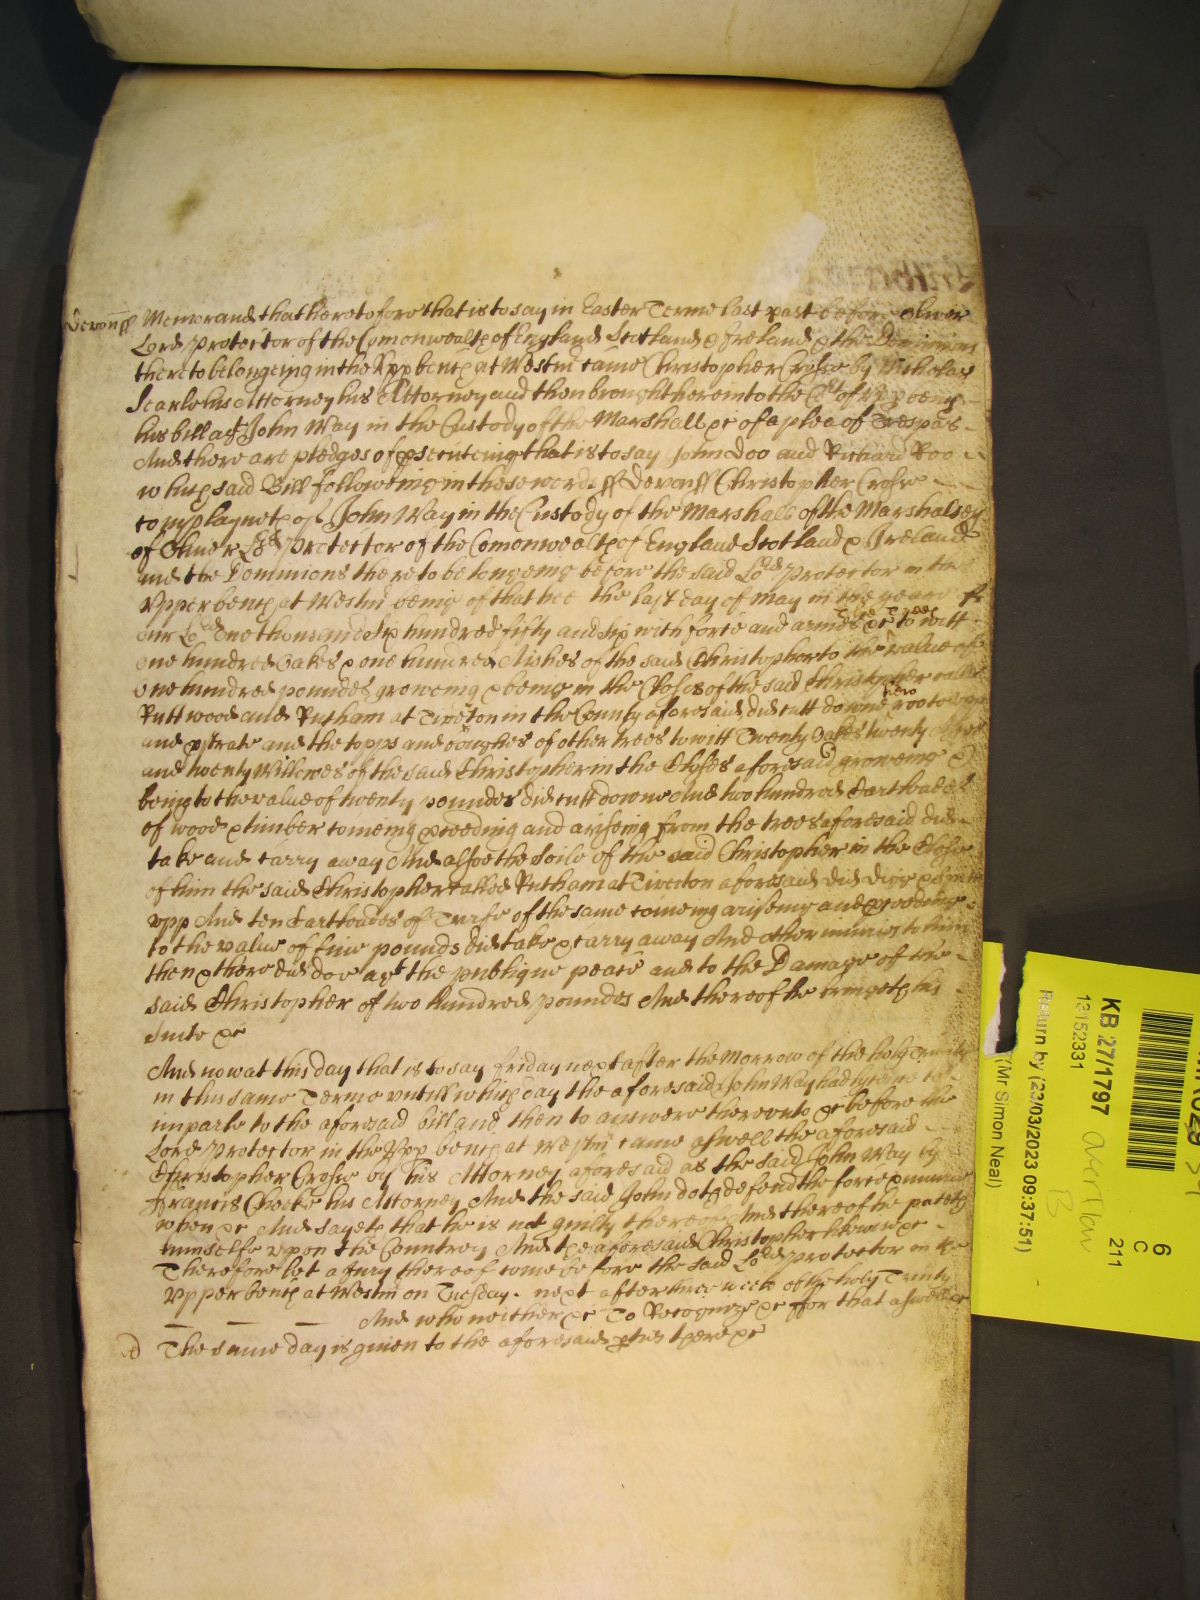 Devon ss Memorand that heretofore that is to say in Easter Terme last past before Oliver
Lord Protector of the Comonwealth of England Scotland & Ireland & the Dominions
thereto belongeing in the Upp bench at Westm came Christopher Crosse by Nicholas
Searle his Attorney his Attorney and then brought here into the Ct of Upp bench
his bill agt John Way in the Custody of the Marshall &c of a plea of Trespas
And there are pledges of psecuteing that is to say John Doo and Richard Roo
which said Bill followeing in these words ss Devon ss Christopher Crosse
complayneth of John Way in the Custody of the Marshall of the Marshalsey
of Oliver Lord Protector of the Comonwealth of England Scotland & Ireland
and the Dominions thereto belongeing before the said Lord Protector in the
Upper bench at Westm being of that hee the last day of May in the yeare of
our Lord one thousand six hundred fifty and six with force and armes &c The Trees to witt
one hundred Oakes & one hundred Aishes of the said Christopher to the value of
one hundred poundes groweing & being in the Closes of the said Christopher called
Ruttwood and Rutham at Tiverton in the County aforesaid did cutt downe hew roote upp
and pstrate and the topps and boughes of other trees to witt Twenty Oakes twenty Ashes
and twenty Willowes of the said Christopher in the Closes aforesaid groweing &
being to the value of twenty poundes did cutt downe And two hundred Cartloades
of wood & timber comeing pceeding and ariseing from the trees aforesaid did
take and carry away And alsoe the Soile of the said Christopher in the Close
of him the said Christopher called Rutham at Tiverton aforesaid did digg &
upp And ten Cartloades of Turfe of the same comeing ariseing and pceeding
to the value of five pounds did take & carry away And other iniuries to him
then & there did doe agt the publique peace and to the Damage of the
said Christopher of two hundred poundes And thereof he bringeth his
suite &c
And now at this day that is to say friday next after the Morrow of the holy Trinity
in this same Terme untill which day the aforesaid John Way had lycence to
imparle to the aforesaid bill and then to answere thereunto &c before the
Lord Protector in the Upp bench at Westm came aswell the aforesaid
Christopher Crosse by his Attorney aforesaid as the said John Way by
Francis Cheeke his Attorney And the said John doth defend the force & iniurie
when &c And sayeth that he is not guilty thereof And thereof he putteth
himselfe upon the Countrey And the aforesaid Christopher likewise &c
Therefore let a Jury thereof come before the said Lord Protector in the
Upper bench at Westm on Tuesday next after three weeks of the holy Trinity
And who neither &c To Recognize &c ffor that aswell &c
The same day is given to the aforesaid pties there &c
KB 27/1797
13152331
Return by (23/03/2023 09:37:51)
(Mr Simon Neal)
6
C
211